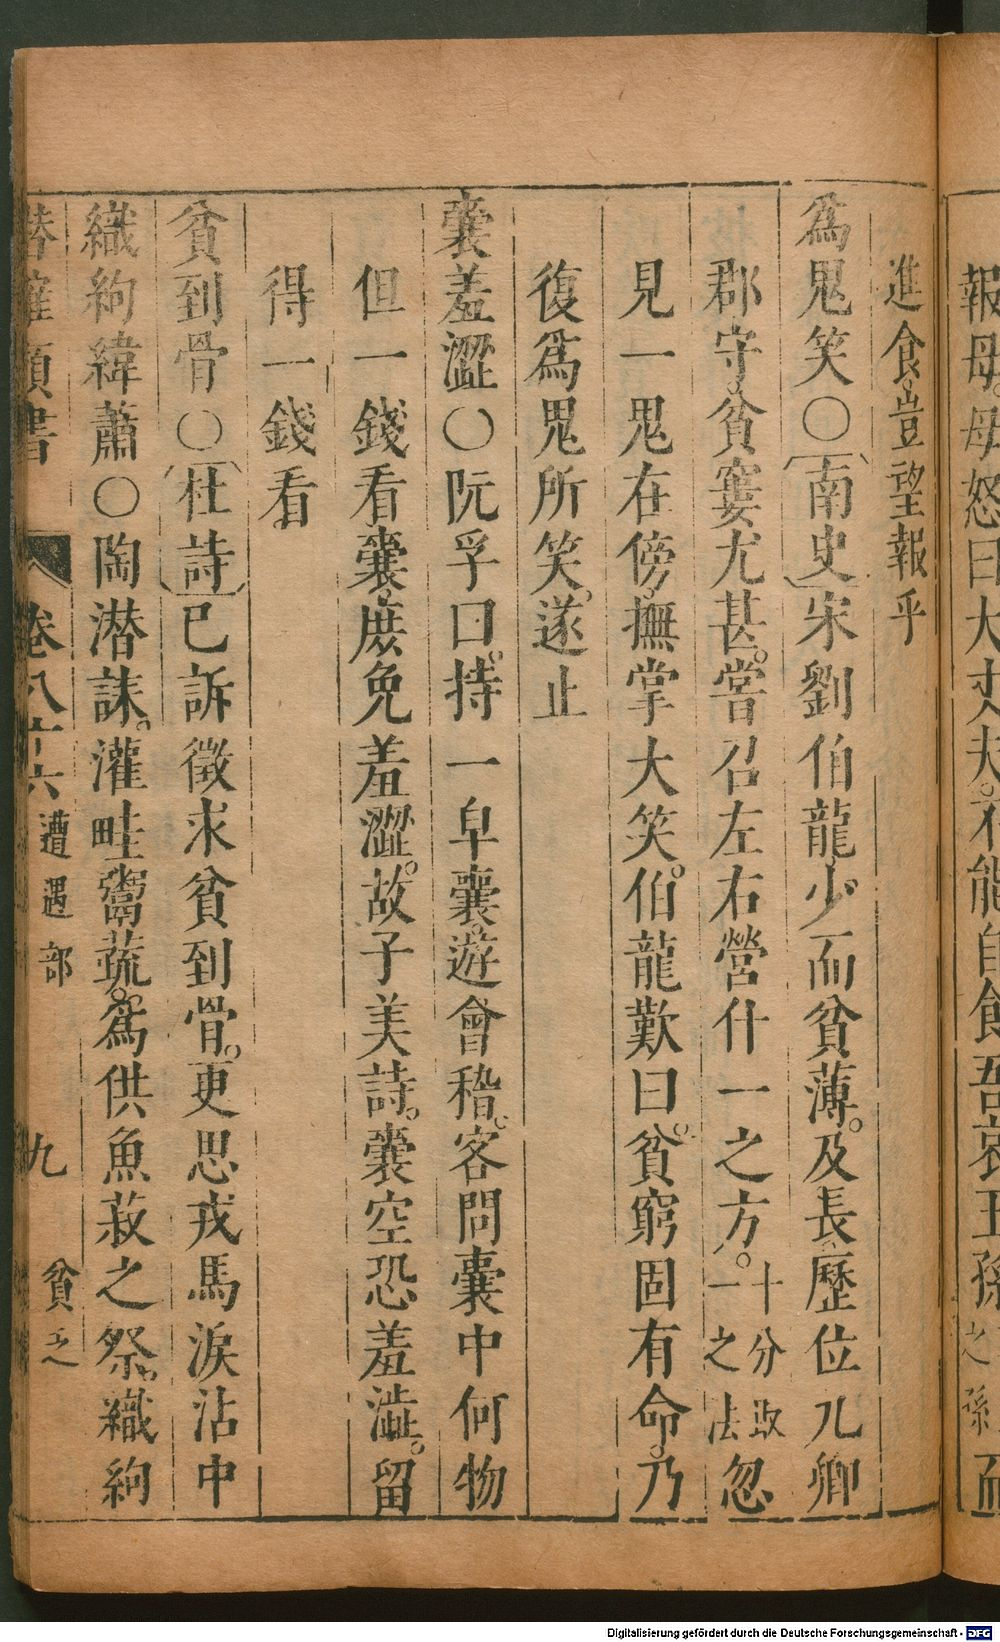 報母母怒曰大丈夫不能自食吾哀王孫之孫而
進食豈望報乎
爲鬼笑○〔南史〕宋劉伯龍少而貧薄。及長歷位九卿
郡守貧窶尤甚。嘗召左右營什一之方。十分取一之法忽
見一鬼在傍撫掌大笑。伯龍歎曰。貧窮固有命。乃
復爲鬼所笑。遂止
囊羞澀○阮孚曰。持一皁囊。遊會稽。客問囊中何物
但一錢看囊。庶免羞澀。故子美詩。囊空恐羞澁。留
得一錢看
貧到骨○〔杜詩〕已訴徵求貧到骨。更思戎馬淚沾中
織絇緯蕭○陶潛誄。灌畦鬻蔬。爲供魚菽之祭。織絇
潛確類書 卷八十六 遭遇部 九 貧乏
Digitalisierung gefördert durch die Deutsche Forschungsgemeinschaft - DFG